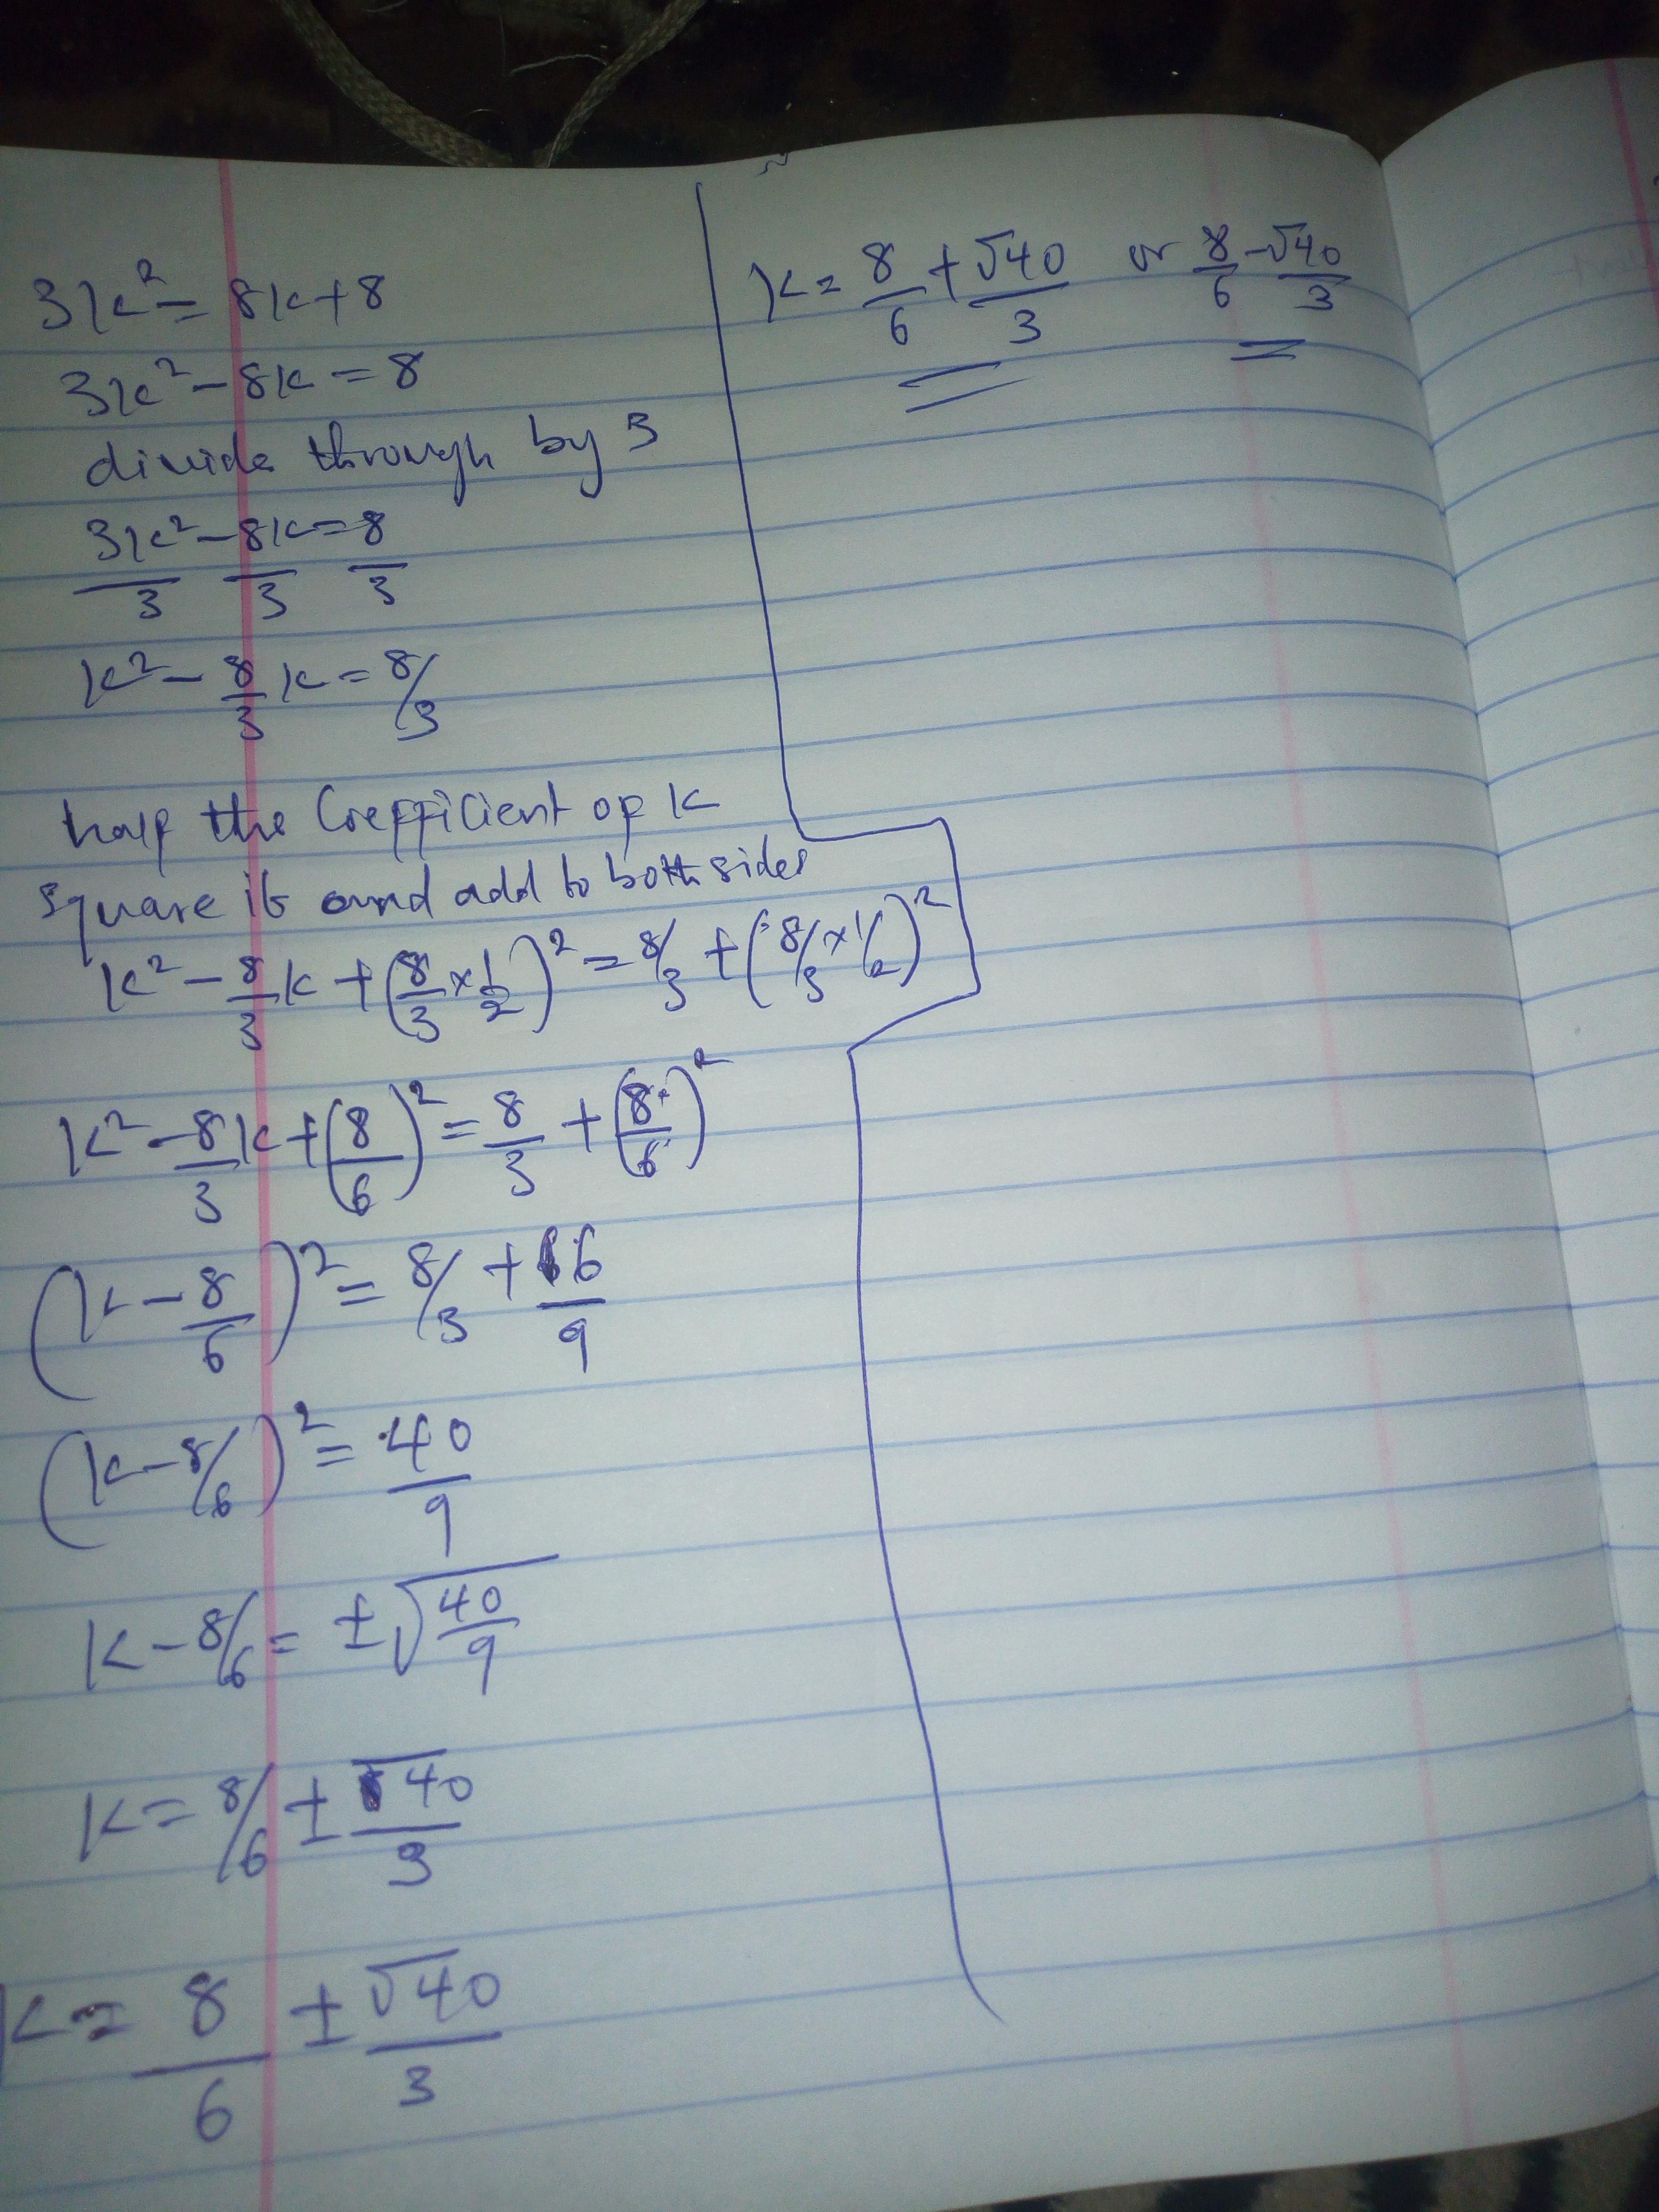 3k² = 8k+8
3k² - 8k = 8
divide through by 3
3k²/3 - 8k/3 = 8/3
k² - 8/3 k = 8/3
half the Coefficient of k
square it and add to both sides
k² - 8/3 k + (8/3 × 1/2)² = 8/3 + (8/3 × 1/2)²
k² - 8/3 k + (8/6)² = 8/3 + (8/6)²
(k - 8/6)² = 8/3 + 16/9
(k - 8/6)² = 40/9
k - 8/6 = ± √(40/9)
k = 8/6 ± √40/3
k = 8/6 ± √40/3
k = 8/6 + √40/3 or 8/6 - √40/3